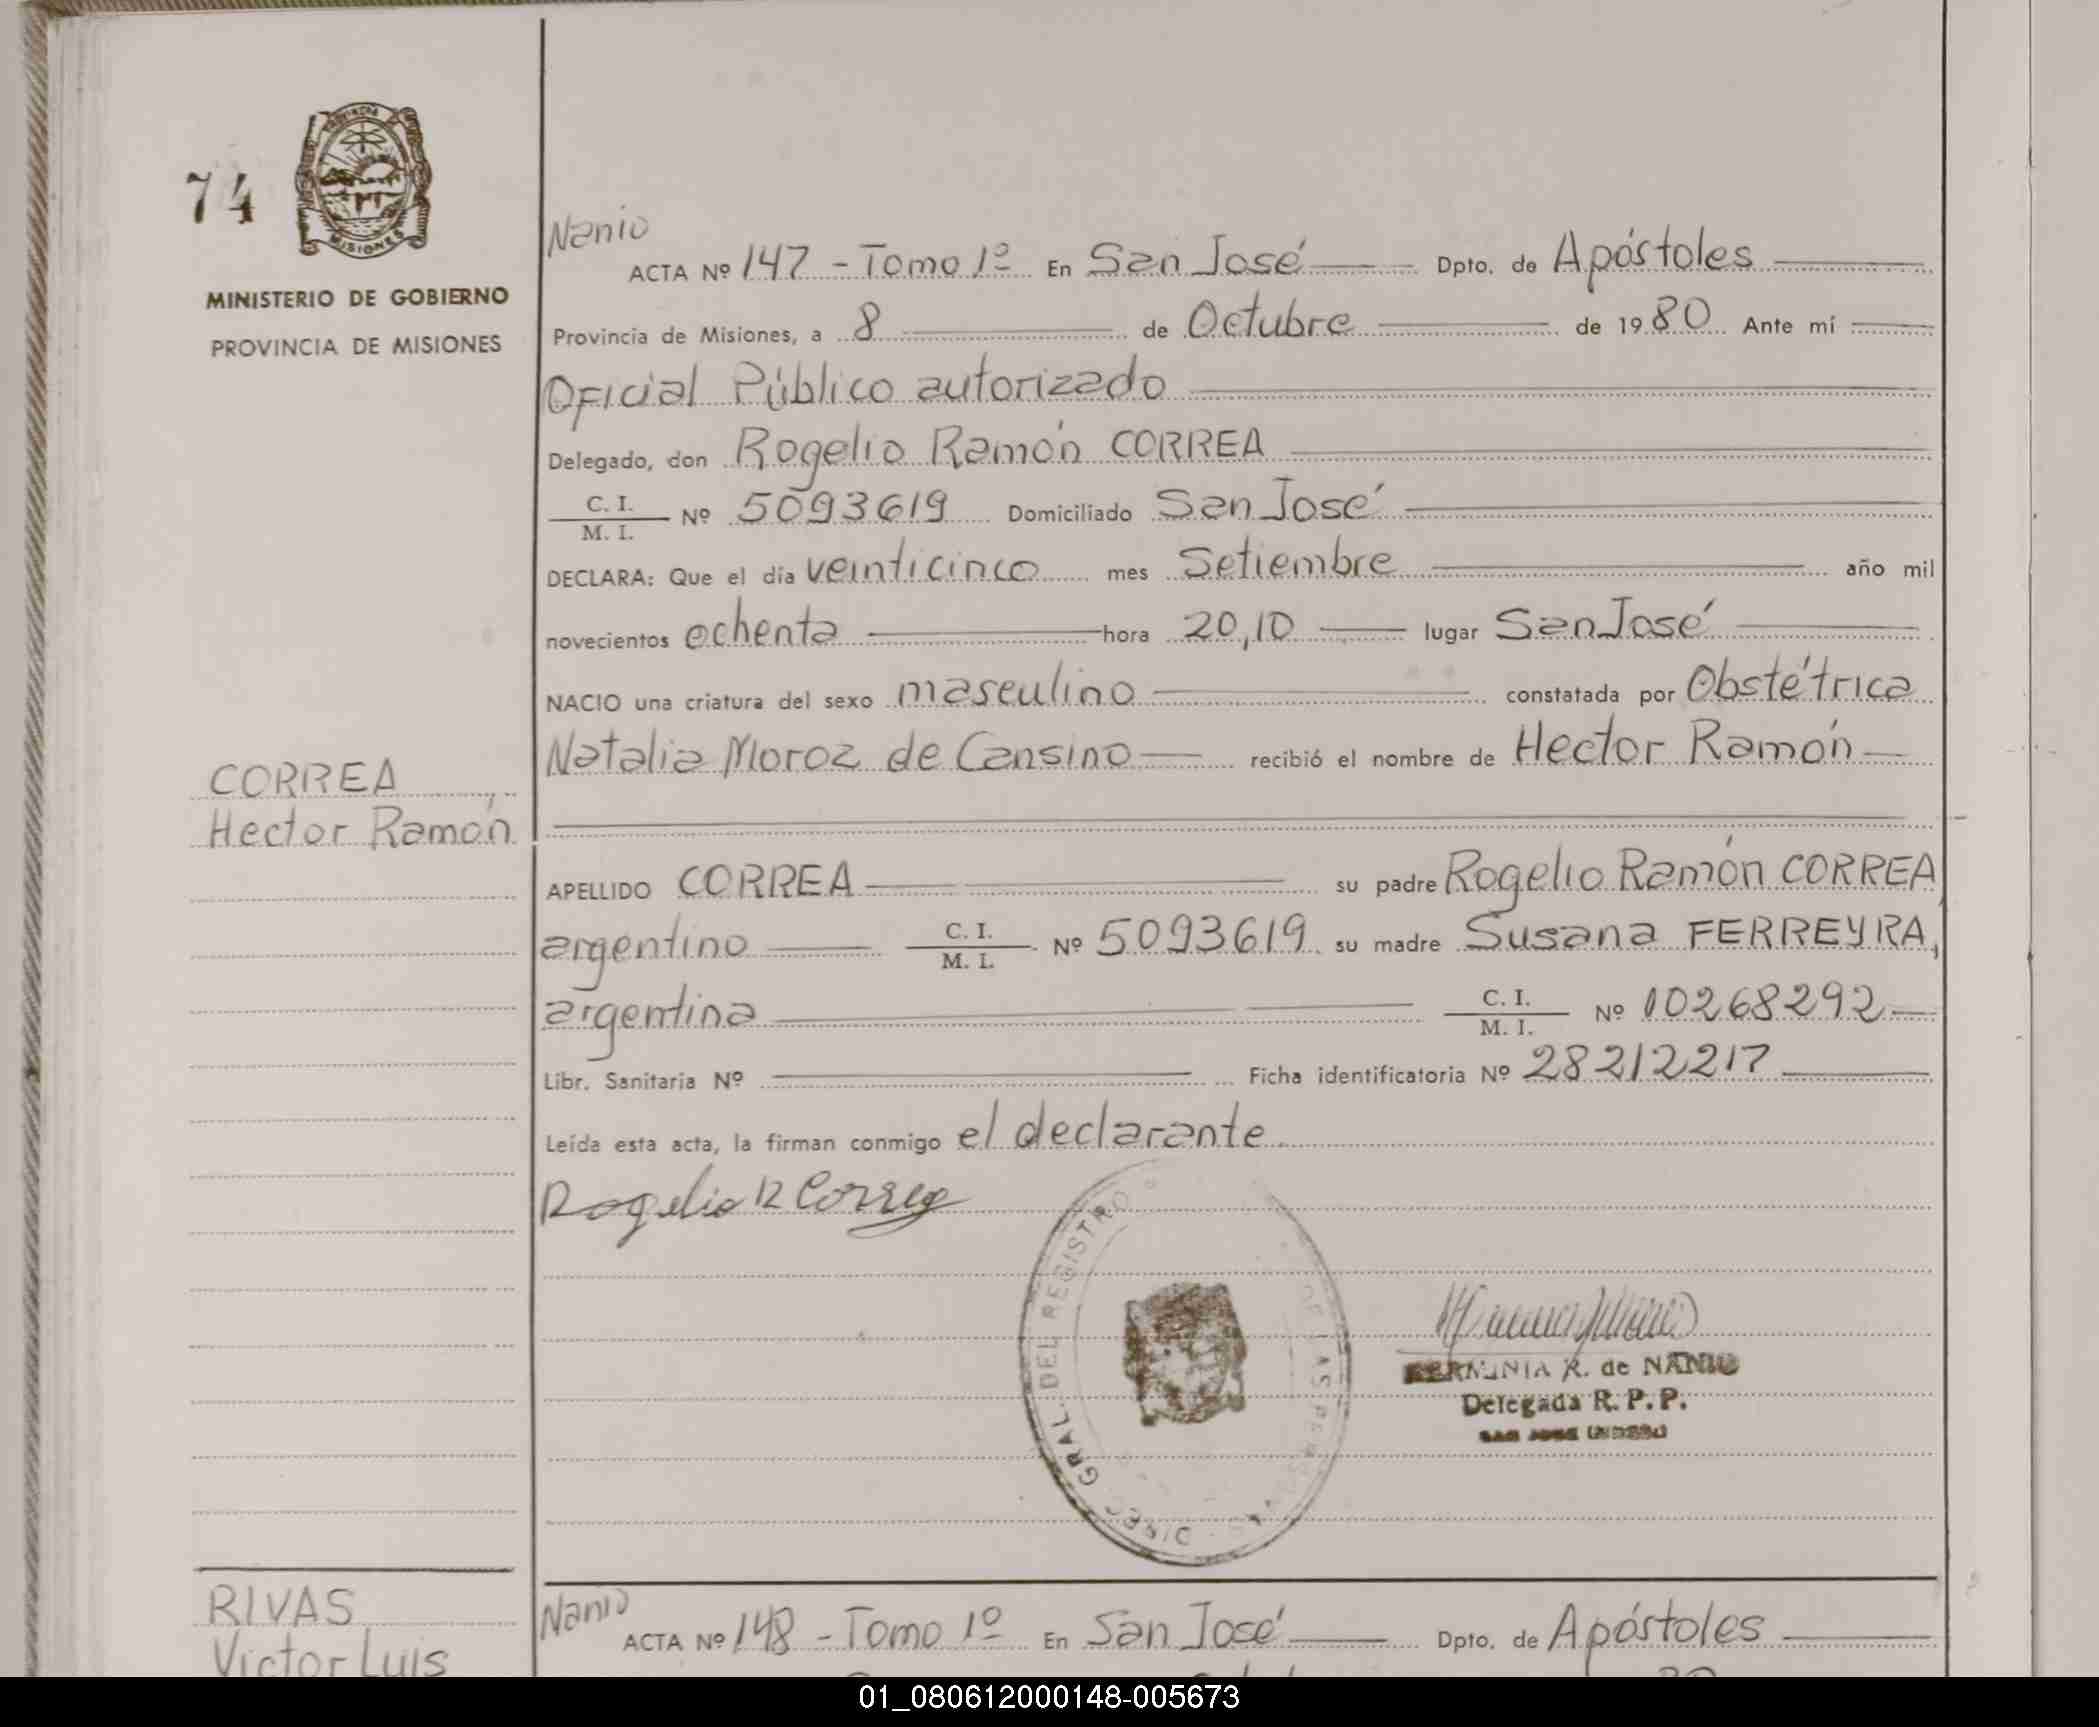 74
PROVINCIA
MISIONES
MINISTERIO DE GOBIERNO
PROVINCIA DE MISIONES
CORREA
Hector Ramón
Nanio
ACTA Nº 147 - Tomo 1º En San José Dpto. de Apóstoles
Provincia de Misiones, a 8 de Octubre de 1980 Ante mí
Oficial Público autorizado
Delegado, don Rogelio Ramón CORREA
C. I.
M. I. Nº 5093619 Domiciliado San José
DECLARA: Que el día veinticinco mes Setiembre año mil
novecientos ochenta hora 20,10 lugar San José
NACIO una criatura del sexo masculino constatada por Obstétrica
Natalia Moroz de Cansino recibió el nombre de Hector Ramón
APELLIDO CORREA su padre Rogelio Ramón CORREA,
argentino C. I. M. I. Nº 5093619 su madre Susana FERREYRA,
argentina C. I. M. I. Nº 10268292
Libr. Sanitaria Nº Ficha identificatoria Nº 28212217
Leída esta acta, la firman conmigo el declarante
Rogelio R Correa
DIREC. GRAL. DEL REGISTRO DE LAS PERSONAS
HERMINIA R. de NANIO
Delegada R. P. P.
SAN JOSE
RIVAS
Victor Luis
Nanio
ACTA Nº 148 - Tomo 1º En San José Dpto. de Apóstoles
01_080612000148-005673